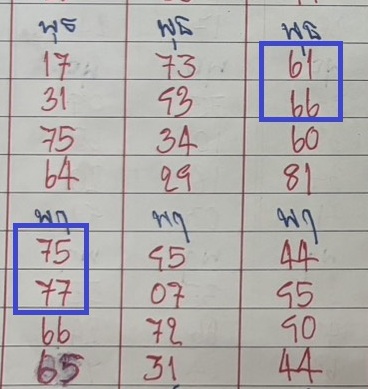 พุธ พุธ พุธ
17 73 61
31 93 66
75 34 60
64 29 81
พฤ พฤ พฤ
75 95 44
77 07 95
66 72 90
65 31 44